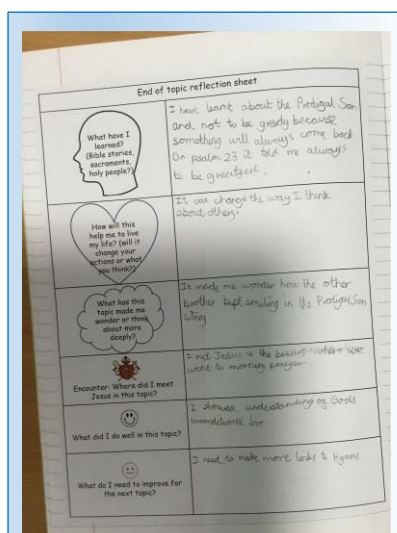 End of topic reflection sheet
What have I
learned?
(Bible stories,
sacraments,
holy people?)
I have leant about the Prodigal Son
and not to be greedy because
something will always come back
On psalm 23 it told me always
to be greatfull.
How will this
help me to live
my life? (will it
change your
actions or what
you think?)
It can change the way I think
about others.
What has this
topic made me
wonder or think
about more
deeply?
It made me wonder how the other
brother kept smiling in the Prodigal Son
story
Encounter: Where did I meet
Jesus in this topic?
I met Jesus in the where we
went to morning prayer
What did I do well in this topic?
I showed understanding of Gods
unconditional love
What do I need to improve for
the next topic?
I need to make more links to Hymns